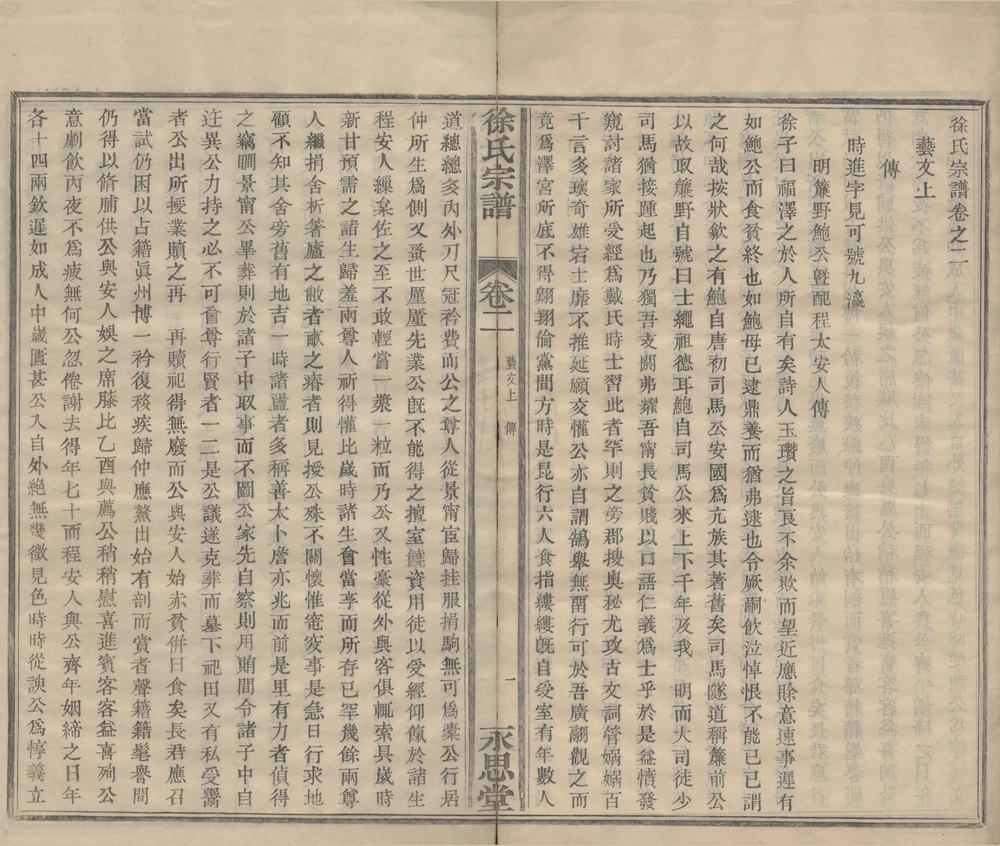 徐氏宗譜卷之二
藝文上
傳
時進字見可號九瀛
明簾野鮑公曁配程太安人傳
徐子曰福澤之於人所自有矣詩人玉瓚之旨良不余欺而望近應賖意速事遲有
如鮑公而食貧終也如鮑母已逮鼎養而猶弗逮也令厥嗣飲泣悼恨不能已已謂
之何哉按狀歙之有鮑自唐初司馬公安國爲亢族其著舊矣司馬隧道稱簾前公
以故取簾野自號曰士繩祖德耳鮑自司馬公來上下千年及我　明而大司徒少
司馬猶接踵起也乃獨吾支闕弗耀吾甯長貧賤以口語仁義爲士乎於是益憤發
窺討諸家所受經爲戴氏時士習此者罕則之旁郡搜奥秘尤攻古文詞㑋媚媚百
千言多瓌奇雄宕士靡不推延願交懽公亦自謂鵠舉無難行可於吾廣翮觀之而
竟爲澤宮所底不得翺翔倫黨間方時是昆行六人食指縷縷旣自受室有年數人
道總總炙內外刀尺冠衿費而公之尊人從景甯宦歸挂服捐駒無可爲橐公行居
仲所生爲側又蚤世厪厪先業公旣不能得之擅室饒資用徒以受經仰餼於諸生
程安人繅枲佐之至不敢輕嘗一漿一粒而乃公又性豪從外與客俱輒索具歲時
新甘預需之諸生歸羞兩尊人祈得懽比歲時諸生會當享而所存已罕幾餘兩尊
人繼捐舍析箸廬之敝者畝之瘠者則見授公殊不關懷惟窀穸事是急日行求地
顧不知其舍旁舊有地吉一時諸溋者多稱善太卜㢝亦兆而前是里有力者偵得
之竊瞷景甯公畢葬則於諸子中取事而不圖公家先自察則用賄間令諸子中自
迋異公力持之必不可會尊行賢者一二是公議遂克葬而墓下祀田又有私受鬻
者公出所授業贖之再　再贖祀得無廢而公與安人始赤貧併日食矣長君應召
當試仍困以占籍眞州博一衿復移疾歸仲應薦出始有剖而賞者聲籍籍髦譽間
仍得以脩脯供公與安人娛之席滕比乙酉與薦公稍稍慰喜進賓客客益喜殉公
意劇飲丙夜不爲疲無何公忽倦謝去得年七十而程安人與公齊年姻締之日年
各十四兩欽遲如成人中歲匱甚公入自外絶無幾微見色時時從諛公爲惇義立
徐氏宗譜
卷二
藝文上　傳
一
永思堂